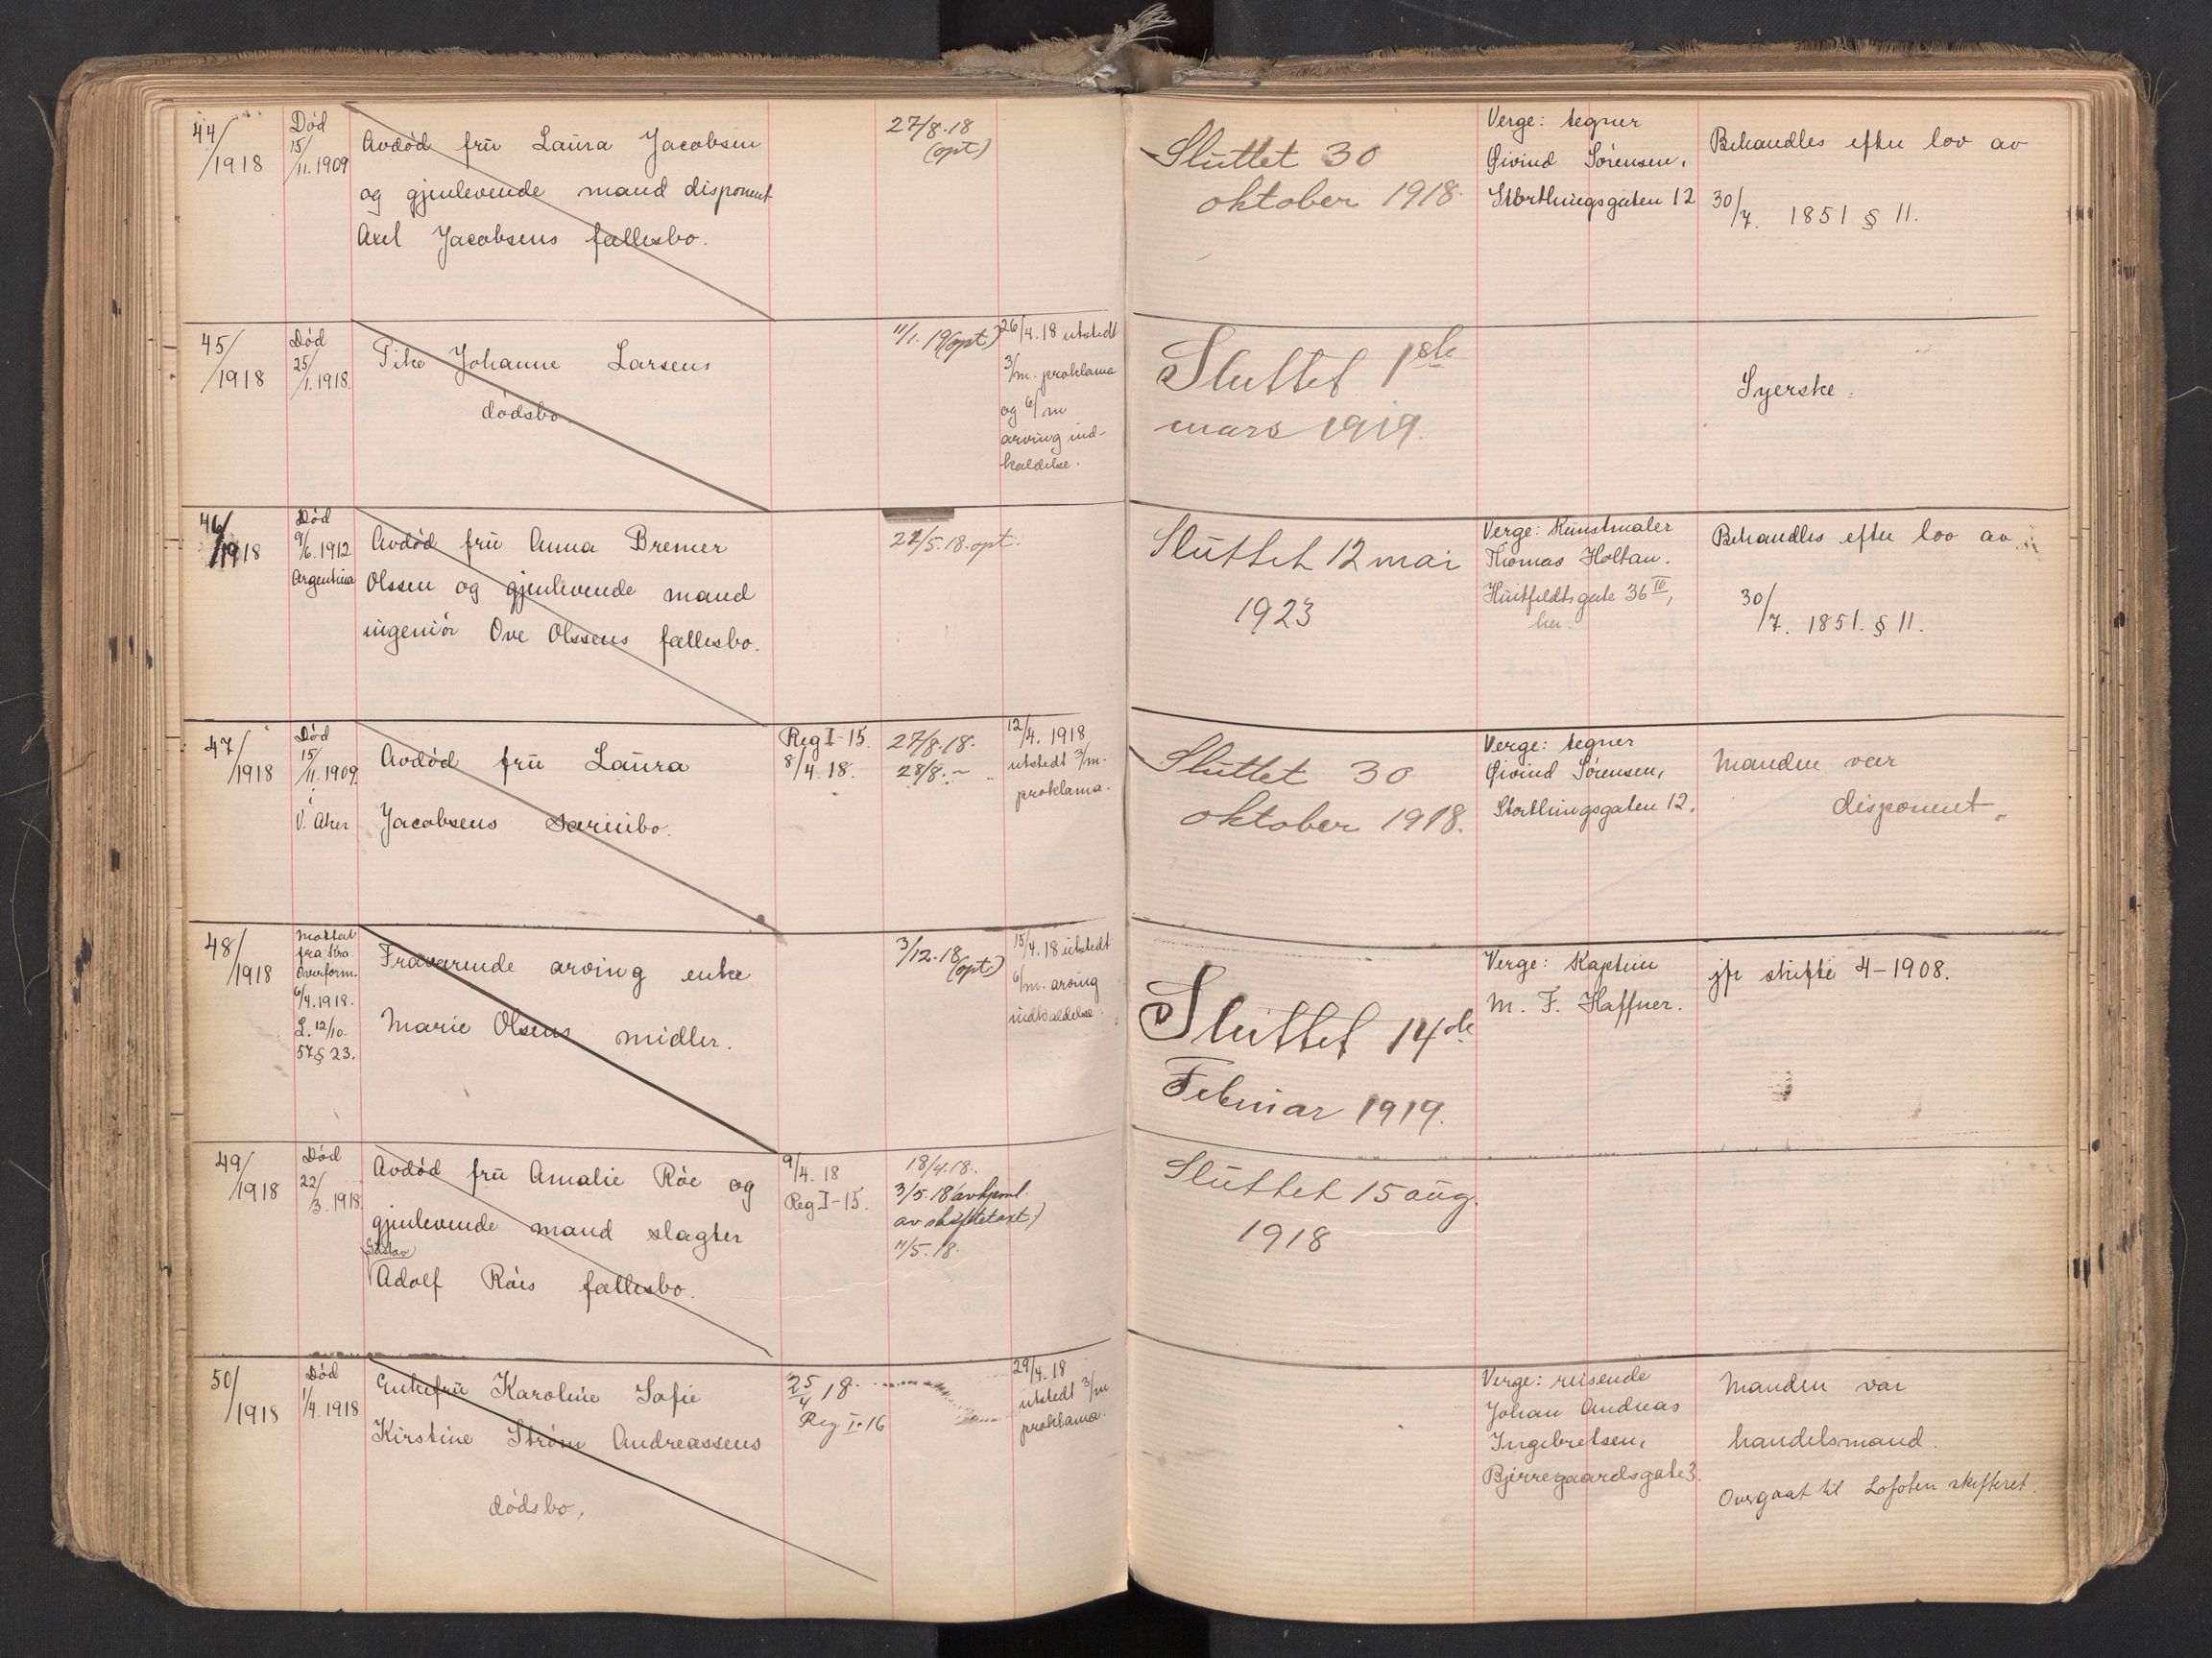 44/1918
Død
15/11.1909
Avdød frū Laūra Jacobsen
og gjenlevende mand disponent
Axel Jacobsens fællesbo.
27/8.18
(opt)
Slūttet 30
oktober 1918.
Verge: tegner
Øivind Sørensen,
Storthingsgaten 12
Behandles efter lov av
30/7. 1851 § 11.
45/1918
Død
25/1.1918.
Pike Johanne Larsens
dødsbo.
11/1.19(opt)
26/4.18 utstedt
3/m. proklama
og 6/m
arving ind-
kaldelse.
Sluttet 1ste
mars 1919.
Syerske.
46/1918
Død
9/6.1912
Argentina
Avdød frū Anna Bremer
Olssen og gjenlevende mand
ingeniør Ove Olssens fællesbo.
22/5.18.opt.
Slūttet 12 mai
1923
Verge: Kunstmaler
Thomas Holtan.
Huitfeldtsgate 36 IV,
her.
Behandles efter lov av
30/7. 1851. § 11.
47/1918
Død
15/11.1909
i
V. Aker
Avdød frū Laūra
Jacobsens særiebo.
Reg I-15.
8/4.18.
27/8.18.
28/8.~
12/4. 1918
utstedt 3/m.
proklama.
Slūttet 30
oktober 1918.
Verge: tegner
Øivind Sørensen,
Stortningsgaten 12.
Manden var
disponent.
48/1918
Mottat
fra Kra.
Overform.
6/4.1918.
L. 12/10.
57 § 23.
Fraværende arving enke
Marie Olsens midler.
3/12.18.
(opt.)
15/4.18 utstedt
6/m. arving
indkaldelse.
Sluttet 14de
Februar 1919.
Verge: Kaptein
M. F. Haffner.
jfr skifte 4-1908.
49/1918
Død
22/3.1918
Avdød frū Amalie Røe og
gjenlevende mand slagter
Gustav
Adolf Røes fællesbo.
9/4.18
Reg I-15.
18/4.18.
3/5.18
11/5.18.
Slūttet 15 aūg.
1918
50/1918
Død
1/4.1918
Enkefrū Karoline Sofie
Kirstine Strøm Andreassens
dødsbo,
25/4 18.
Reg I-16
29/4.18
utstedt 3/m
proklama.
Verge: reisende
Johan Andreas
Ingebretsen,
Bjerregaardsgate 3.
Manden var
handelsmand.
Overgaat til Lofoten skifteret.